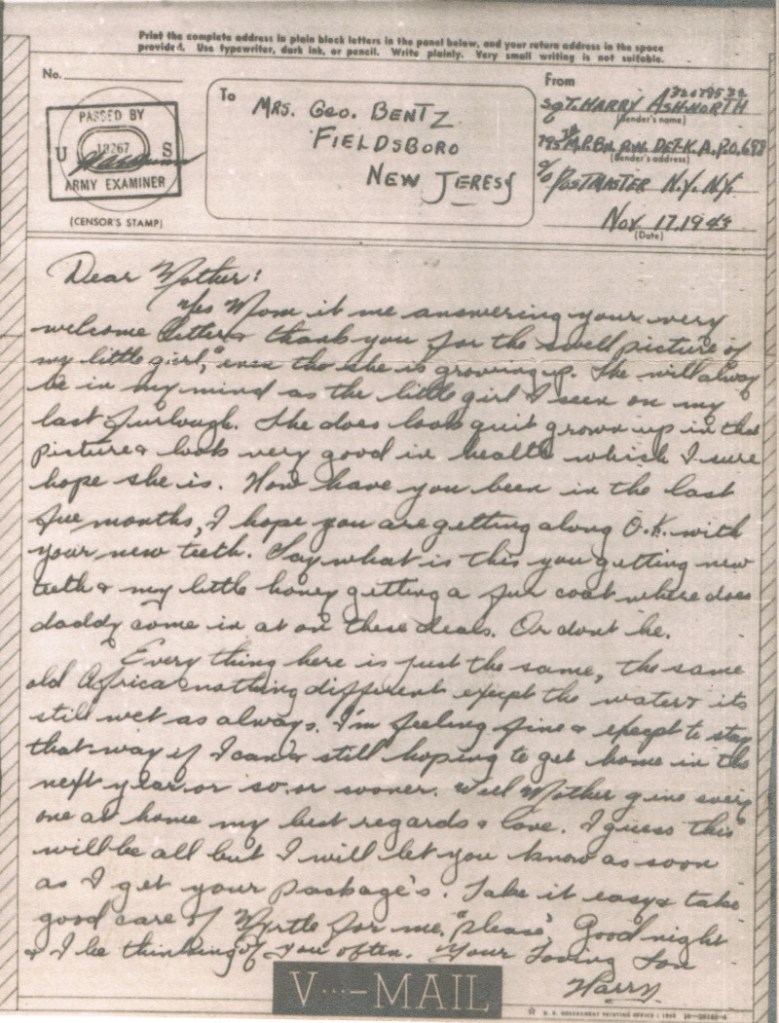 Print the complete address in plain block letters in the panel below, and your return address in the space
provided. Use typewriter, dark ink, or pencil. Write plainly. Very small writing is not suitable.
No.
PASSED BY
U 19267 S
ARMY EXAMINER
(CENSOR'S STAMP)
To
MRS. GEO. BENTZ
FIELDSBORO
NEW JERESY
From
SGT. HARRY ASHNORTH
(Sender's name)
795 M.P. Bn. P.W. DET-K. A.P.O. 698
(Sender's address)
c/o POSTMASTER N.Y. N.Y.
Nov 17, 1943
(Date)
Dear Mother:
Yes Mom it me answering your very
welcome letter & thank you for the swell picture of
my little girl," even tho she is growing up. She will alway
be in my mind as the little girl I seen on my
last furlough. She does look quit grown up in that
picture & look very good in health which I sure
hope she is. How have you been in the last
few months, I hope you are getting along O.K. with
your new teeth. Say what is this you getting new
teeth & my little honey getting a fur coat where does
daddy come in at on these deals. Or dont he.
Every thing here is just the same, the same
old Africa nothing different except the water & its
still wet as always. I'm feeling fine & expect to stay
that way if I can & still hoping to get home in the
next year or so, or sooner. Well Mother give every
one at home my best regards & love. I guess this
will be all but I will let you know as soon
as I get your package's. Take it easy & take
good care of Myrtle for me, "please". Good night
& I be thinking of you often. Your Loving Son
Harry
V···—MAIL
U. S. GOVERNMENT PRINTING OFFICE : 1943